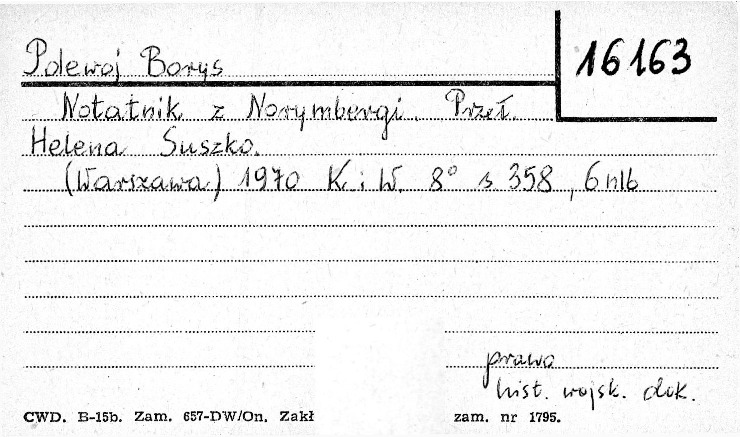 Polewoj Borys
16163
Notatnik z Norymbergi. Przeł.
Helena Suszko.
(Warszawa) 1970 K. i W. 8° s 358, 6 nlb
prawo
hist. wojsk. dok.
CWD. B-15b. Zam. 657-DW/On. Zakł
zam. nr 1795.